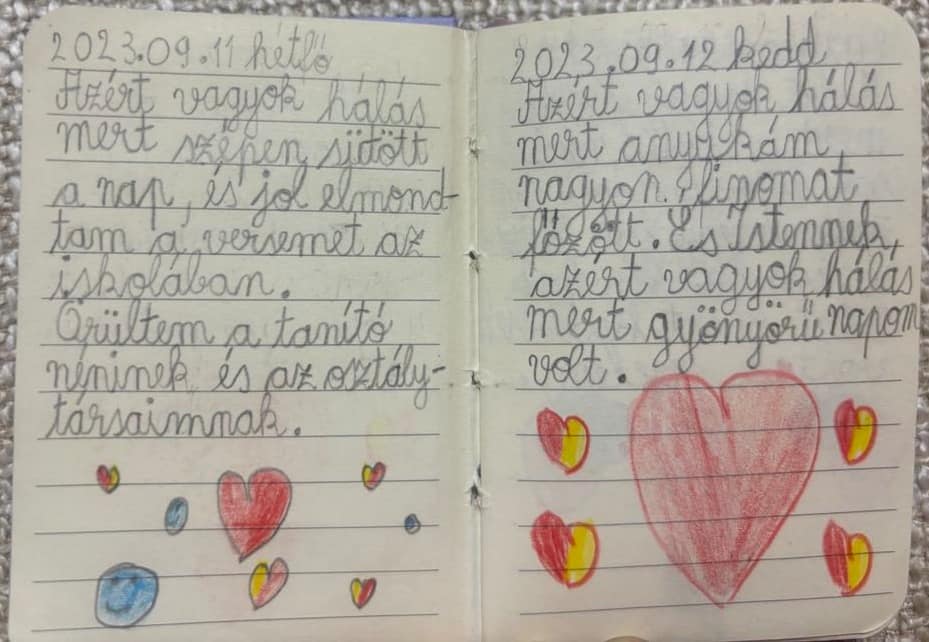 2023.09.11 hétfő
Azért vagyok hálás
mert szépen sjtött
a nap, és jol elmond-
tam a versemet az
iskolában.
Örültem a tanító
néninek és az osztály-
társaimnak.
2023.09.12 kedd
Azért vagyok hálás
mert anyukám
nagyon finomat
főzött. És Istennek,
azért vagyok hálás
mert gyönyörű napom
volt.